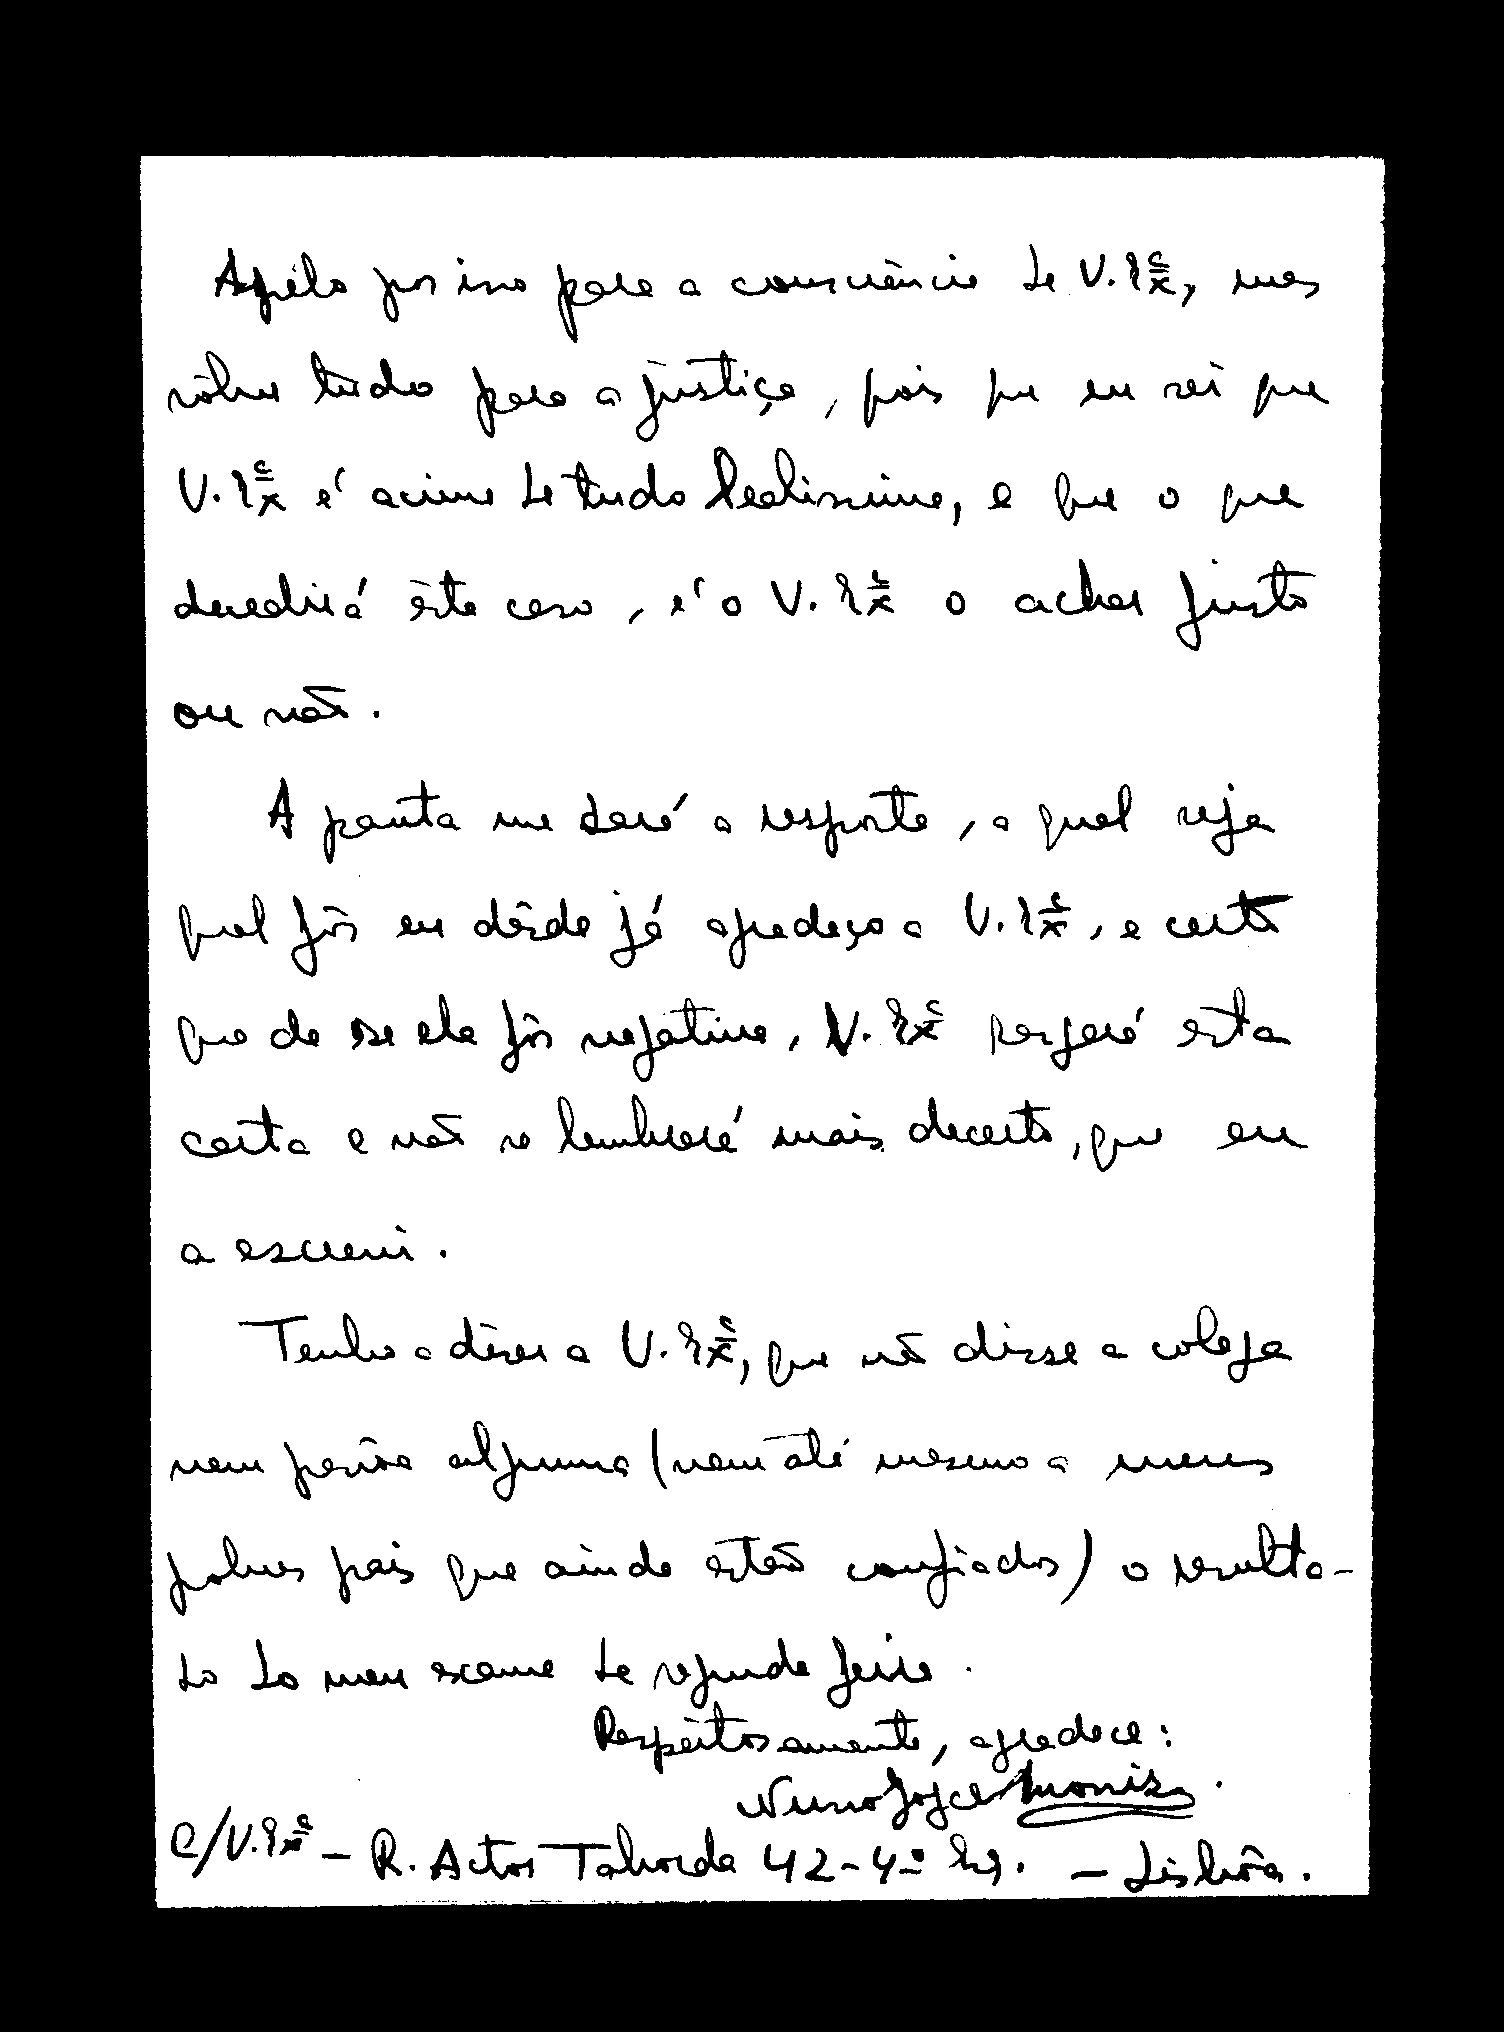 Apélo por isso para a consciência de V. Exᶜ, mas
sôbre tudo para a justiça, pois que eu sei que
V. Exᶜ é acima de tudo Lealissimo, e que o que
decedirá êste caso, é o V. Exᶜ o achar justo
ou não.
A pauta me dará a resposta, a qual seja
qual fôr eu dêsde já agradeço a V. Exᶜ, e certo
que de se ela fôr negativa, V. Exᶜ rasgará esta
carta e não se lembrará mais decerto, que eu
a escrevi.
Tenho a dizer a V. Exᶜ, que não disse a colega
nem pessôa alguma (nem até mesmo a meus
pobres pais que ainda estão confiados) o resulta-
do do meu exame de segunda feira.
Respeitosamente, agradece:
Nuno Moniz.
C/V. Exᶜ - R. Actor Taborda 42-4º Esq. - Lisbôa.